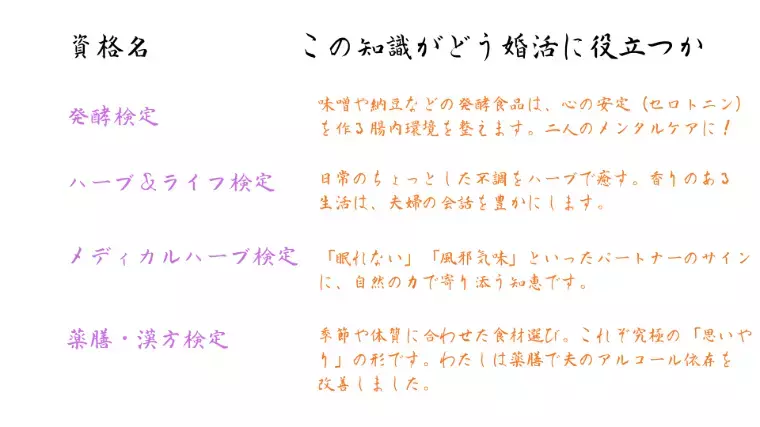 資格名
この知識がどう婚活に役立つか
発酵検定
味噌や納豆などの発酵食品は、心の安定（セロトニン）
を作る腸内環境を整えます。二人のメンタルケアに！
ハーブ＆ライフ検定
日常のちょっとした不調をハーブで癒す。香りのある
生活は、夫婦の会話を豊かにします。
メディカルハーブ検定
「眠れない」「風邪気味」といったパートナーのサイン
に、自然の力で寄り添う知恵です。
薬膳・漢方検定
季節や体質に合わせた食材選び。これぞ究極の「思いや
り」の形です。わたしは薬膳で夫のアルコール依存を
改善しました。